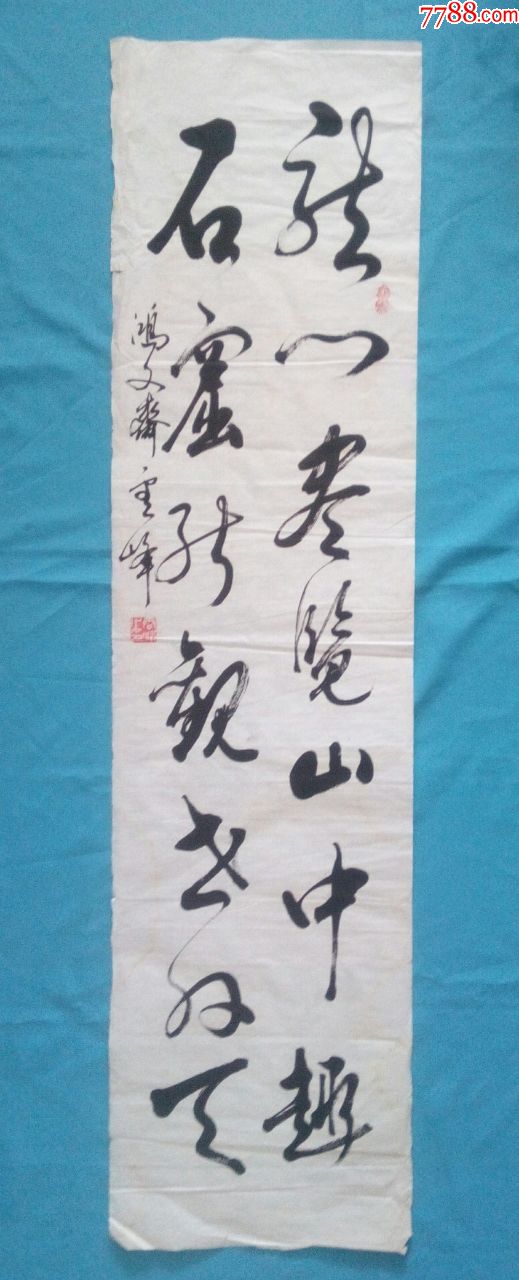 7788.com
龍门盡覽山中趣
石窟能觀世外天
鴻文齋雲峰